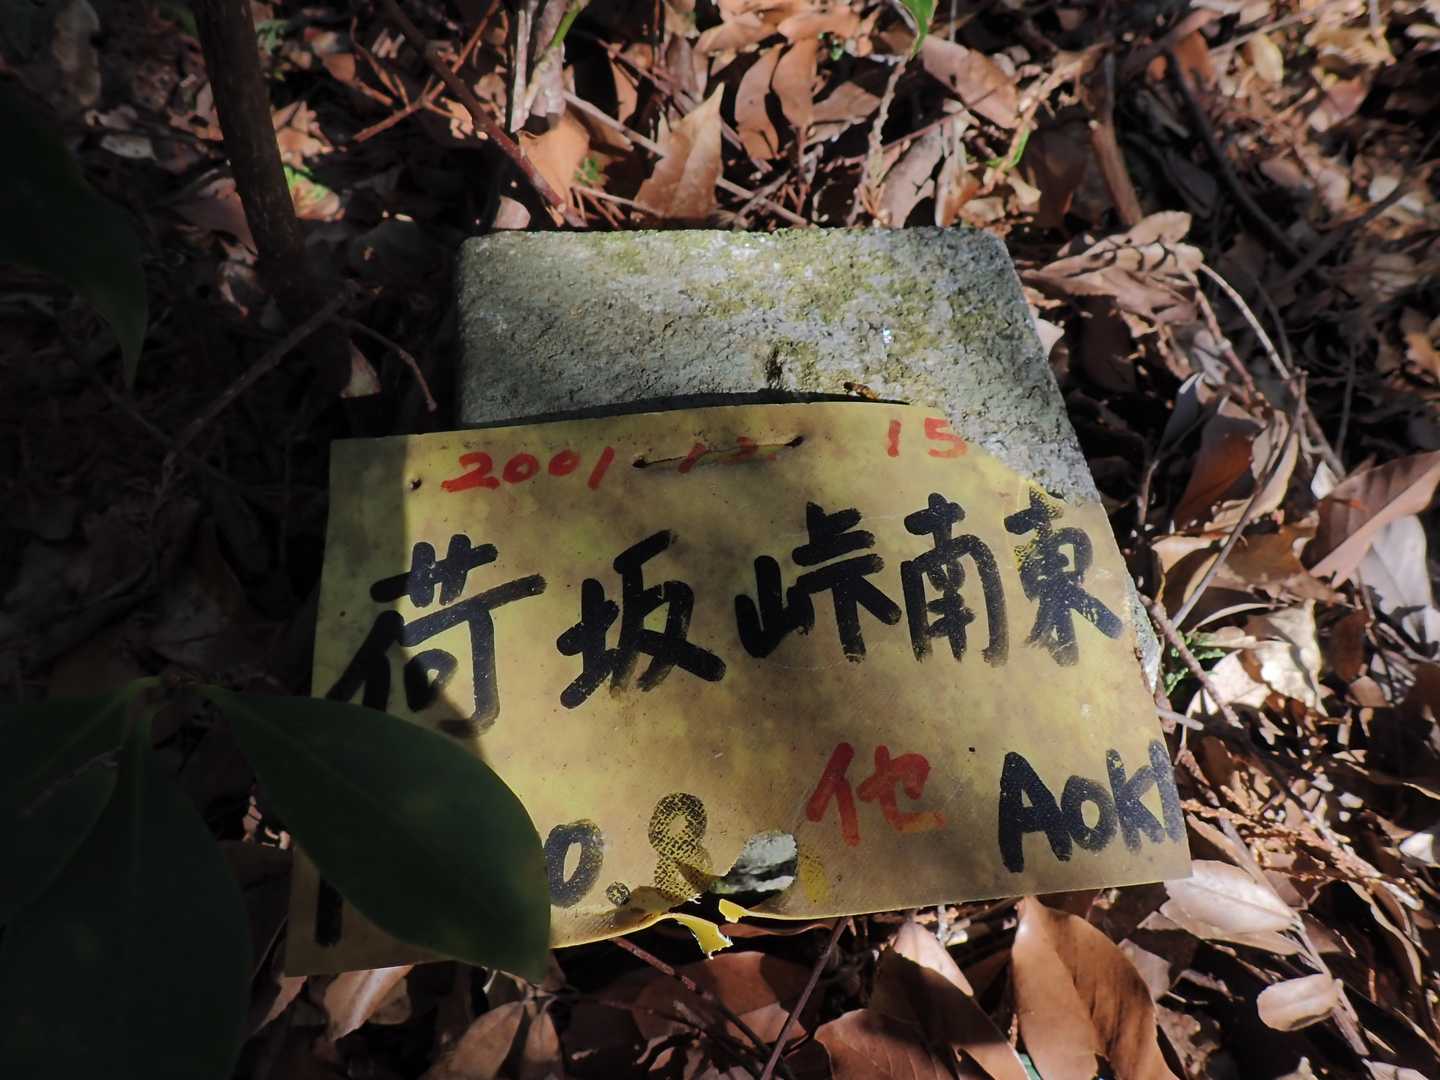 2001 12. 15
荷坂峠南東
o.8 他 AOKI